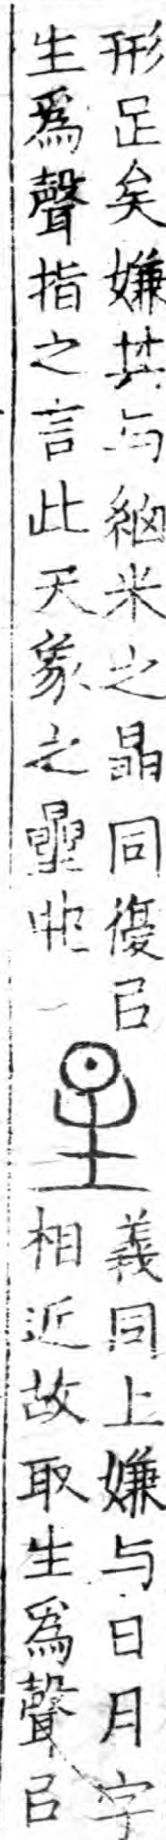 形足矣嫌其与細米之晶同復㠯
生爲聲指之言此天象之曐也
義同上嫌与日月字
相近故取生爲聲㠯